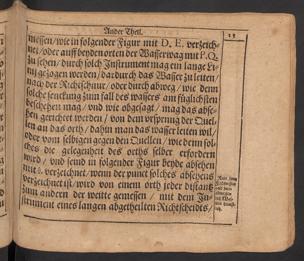 Ander Theil.
15
messen/wie in folgender Figur mit D. E. verzeich-
net/oder auff beyden orten der Wasserwag mit P. Q.
zu sehen/durch solch Instrument mag ein lange Li-
ni gezogen werden/dardurch das Wasser zu leiten/
nach der Richtschnur/oder durch abweg/wie denn
solche senckung zum fall des wassers am füglichsten
beschehen mag/vnd wie obgesagt/mag das abse-
hen gerichtet werden/von dem vrsprung der Quel
len an das orth/dahin man das wasser leiten wil/
oder vom selbigen gegen den Quellen/wie denn sol-
ches die gelegenheit des orths selber erfordern
wird/vnd seind in folgender Figur beyde absehen
mit verzeichnet/wenn der punct solches absehens
verzeichnet ist/wird von einem orth jeder distantz
zum andern der weitte gemessen/mit dem In-
strument eines langen abgetheilten Richtscheidts/